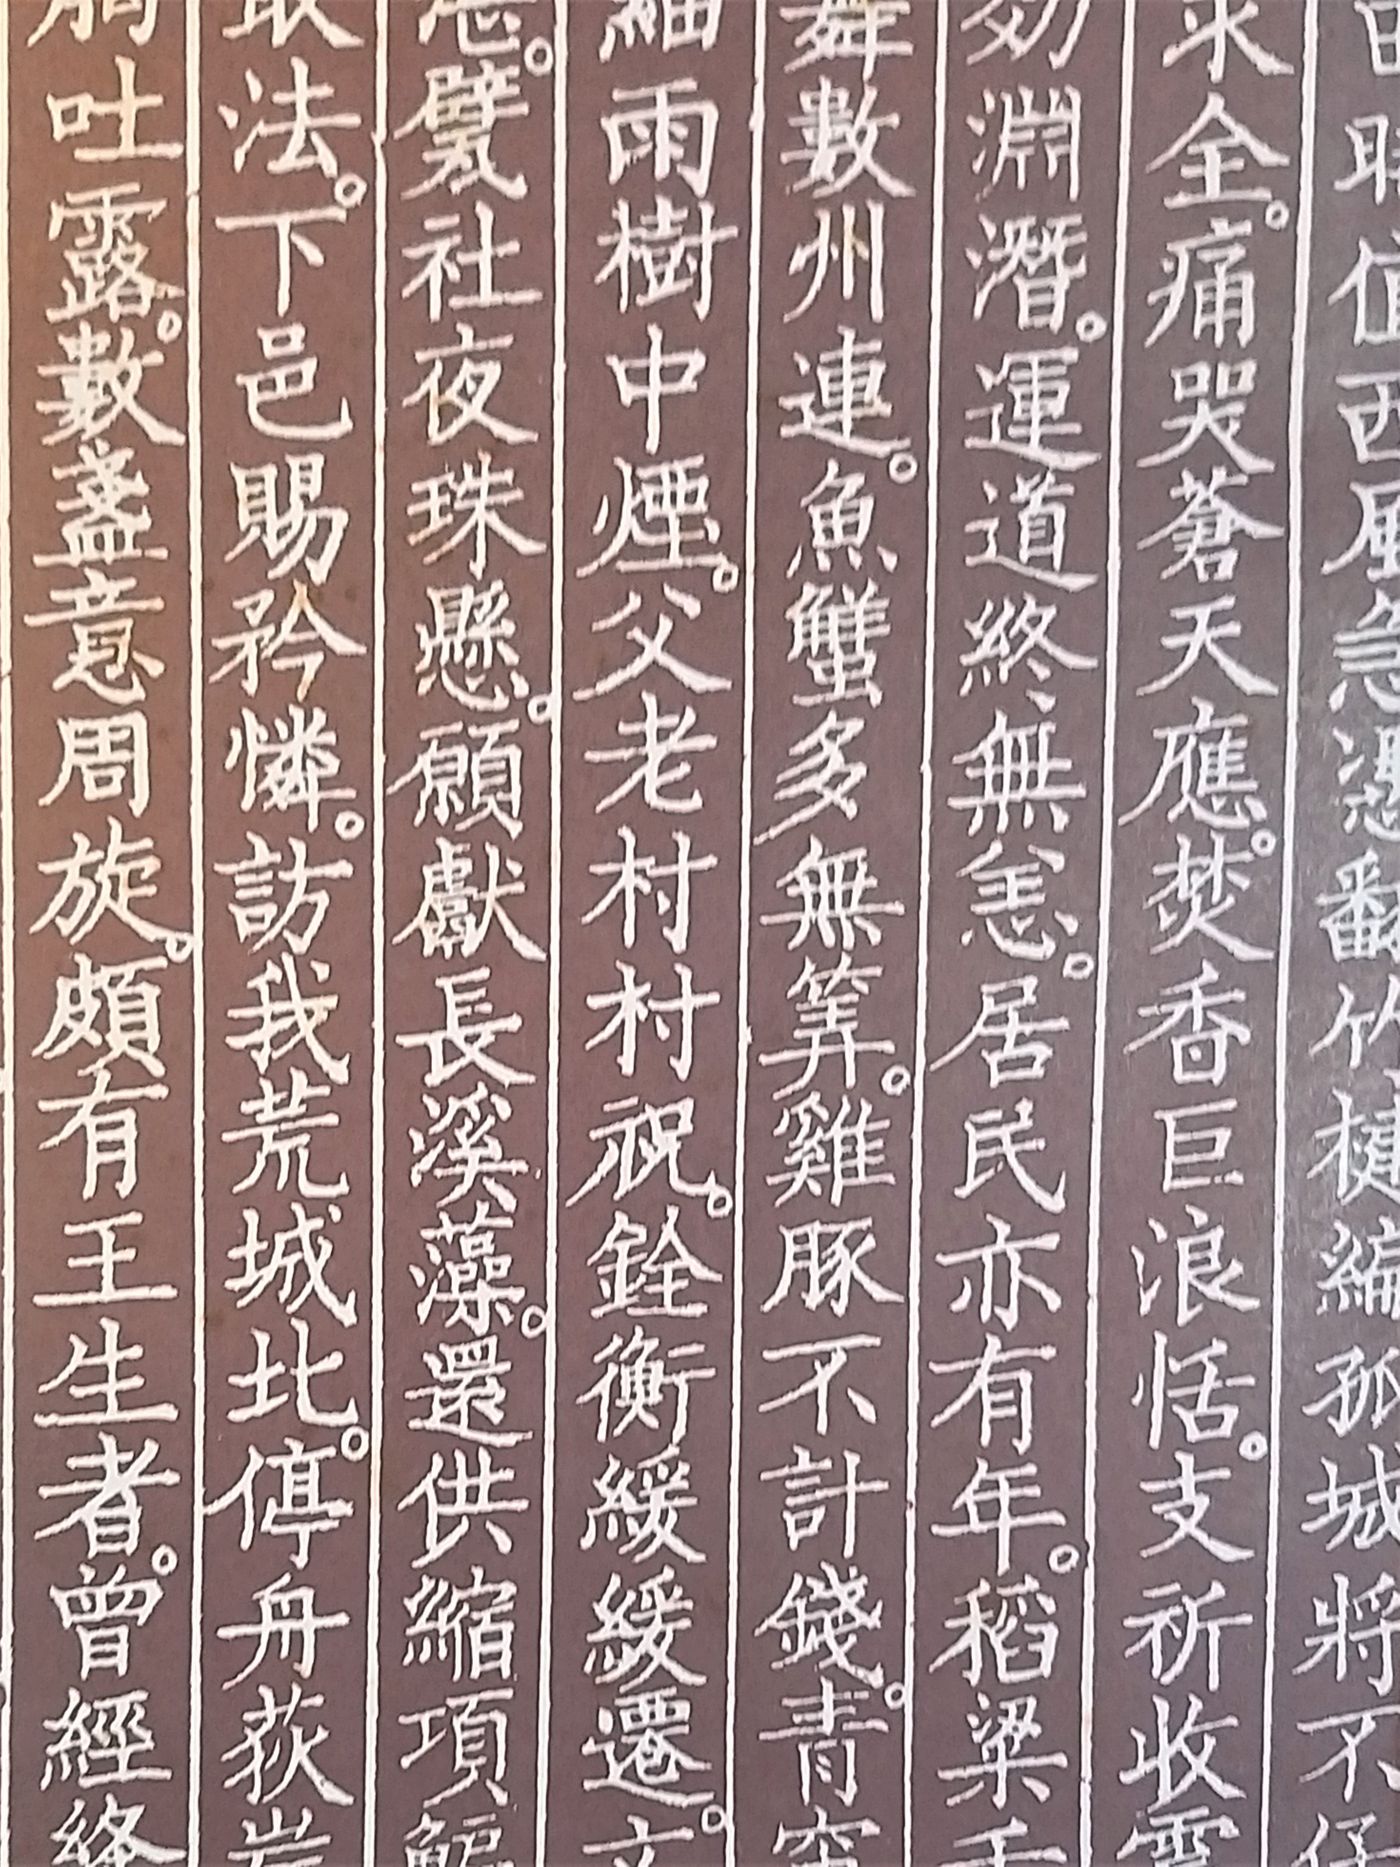 西風急憑翻竹楗編孤城將不
求全。痛哭蒼天應。焚香巨浪恬。支祈收
淵潛。運道終無恙。居民亦有年。稻粱
舞數州連。魚蟹多無筭。雞豚不計錢。青
細雨樹中煙。父老村村祝。銓衡緩緩遷。
甓社夜珠懸。願獻長溪藻。還供縮項
取法。下邑賜矜憐。訪我荒城北。停舟荻
胸吐露。數盞意周旋。頗有王生者。曾經